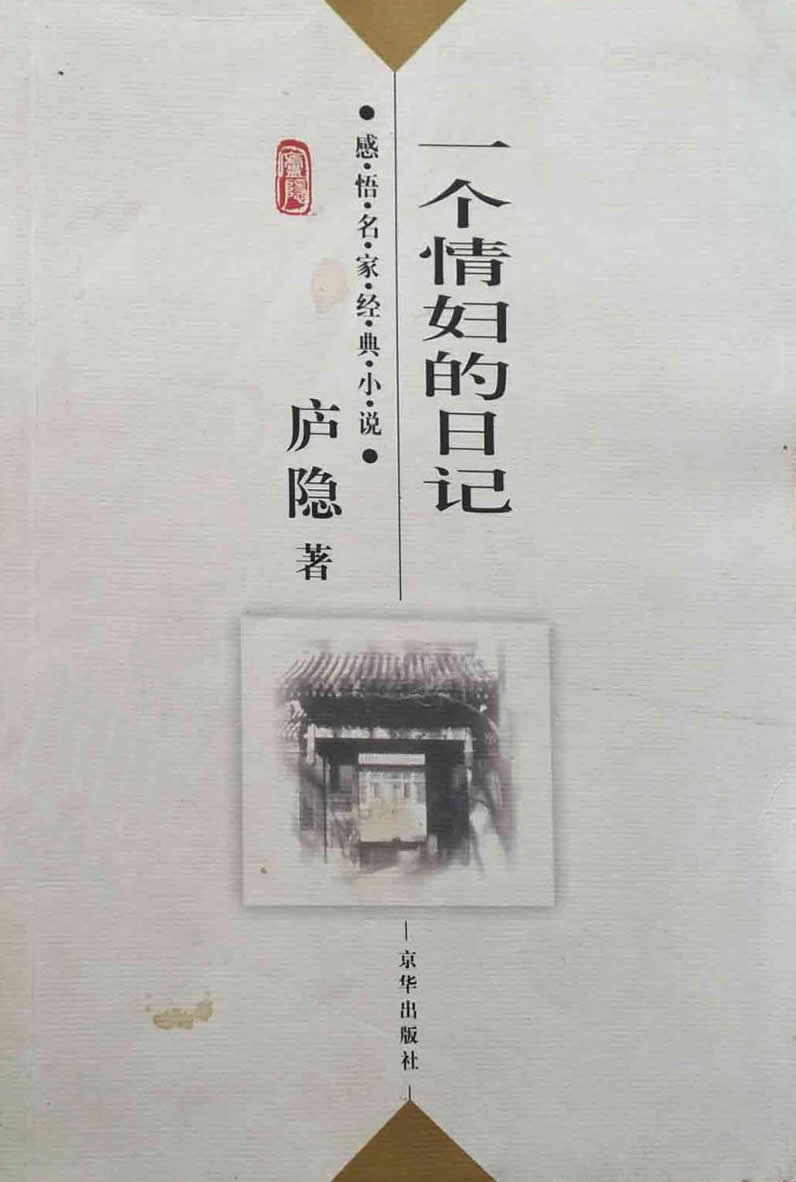 一个情妇的日记
感·悟·名·家·经·典·小·说
庐隐 著
廬隱
京华出版社